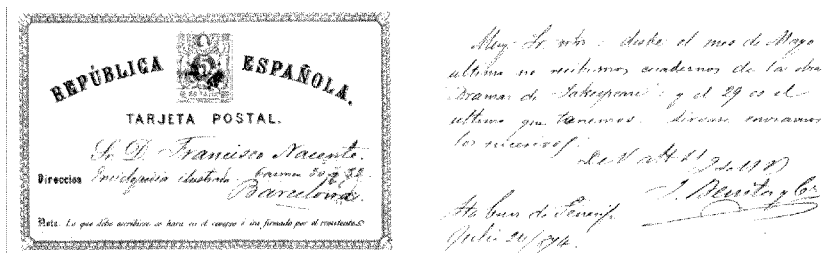 REPÚBLICA ESPAÑOLA.
TARJETA POSTAL.
Sr. D. Francisco Nacente.
Direccion Enciclopedia ilustrada
Barcelona
Nota. Lo que deba escribirse se hará en el reverso é irá firmado por el remitente.
Muy Sr. ntro: desde el mes de Mayo
ultimo no recibimos cuadernos de la obra
Dramas de Sakespeare y el 29 es el
ultimo que tenemos. Sirvase enviarnos
los sucesivos.
J. Benitez y Ca
Sta Cruz de Tenerife
Julio 24/874.